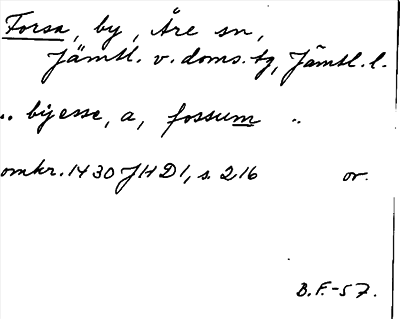 Forsa, by, Åre sn,
Jämtl. v. doms. tg, Jämtl. l.
.. bijesse, a, fossum ..
omkr. 1430 JHD1, s. 216 or.
B.F.-57.